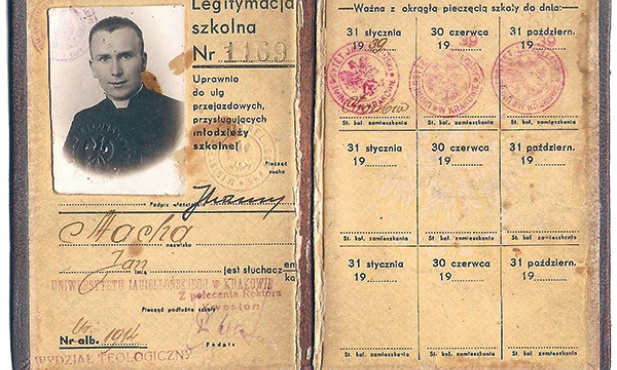 Legitymacja
szkolna
Nr 1169
Uprawnia
do ulg
przejazdowych,
przysługujących
młodzieży
szkolnej
Pieczęć
sucha
Podpis
Macha
nazwisko
Jan
imię
jest słuchacz en
ka
UNIWERSYTETU JAGIELLOŃSKIEGO W KRAKOWIE
Z polecenia Rektora
Pieczęć podłużna szkoły
Nr alb.
Podpis
WYDZIAŁ TEOLOGICZNY
Ważna z okrągłą pieczęcią szkoły do dnia:
31 stycznia 30 czerwca 31 październ.
1939 1939 19
St. kol. zamieszkania St. kol. zamieszkania St. kol. zamieszkania
31 stycznia 30 czerwca 31 październ.
19 19 19
St. kol. zamieszkania St. kol. zamieszkania St. kol. zamieszkania
31 stycznia 30 czerwca 31 październ.
19 19 19
St. kol. zamieszkania St. kol. zamieszkania St. kol. zamieszkania